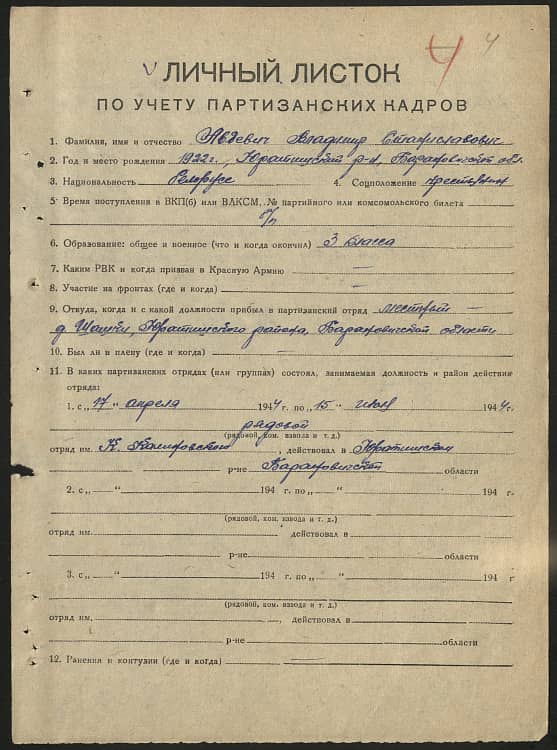 4 4
V ЛИЧНЫЙ ЛИСТОК
ПО УЧЕТУ ПАРТИЗАНСКИХ КАДРОВ
1. Фамилия, имя и отчество Авдевич Владимир Станиславович
2. Год и место рождения 1922 г., Юратишский р-н, Барановичской обл.
3. Национальность Белорусс 4. Соцположение крестьянин
5. Время поступления в ВКП(б) или ВЛКСМ, № партийного или комсомольского билета
б/п
6. Образование: общее и военное (что и когда окончил) 3 класса
7. Каким РВК и когда призван в Красную Армию —
8. Участие на фронтах (где и когда) —
9. Откуда, когда и с какой должности прибыл в партизанский отряд местный —
д. Юратишского района, Барановичской области
10. Был ли в плену (где и когда) —
11. В каких партизанских отрядах (или группах) состоял, занимаемая должность и район действия
отряда:
1. с „17“ апреля 1944 г. по „15“ июля 1944 г.
рядовой
(рядовой, ком. взвода и т. д.)
отряд им. К. Калиновского, действовал в Юратишском
р-не Барановичской области
2. с „ “ 194 г. по „ “ 194 г.
(рядовой, ком. взвода и т. д.)
отряд им. действовал в
р-не области
3. с „ “ 194 г. по „ “ 194 г.
(рядовой, ком. взвода и т. д.)
отряд им. , действовал в
р-не области
12. Ранения и контузии (где и когда) —